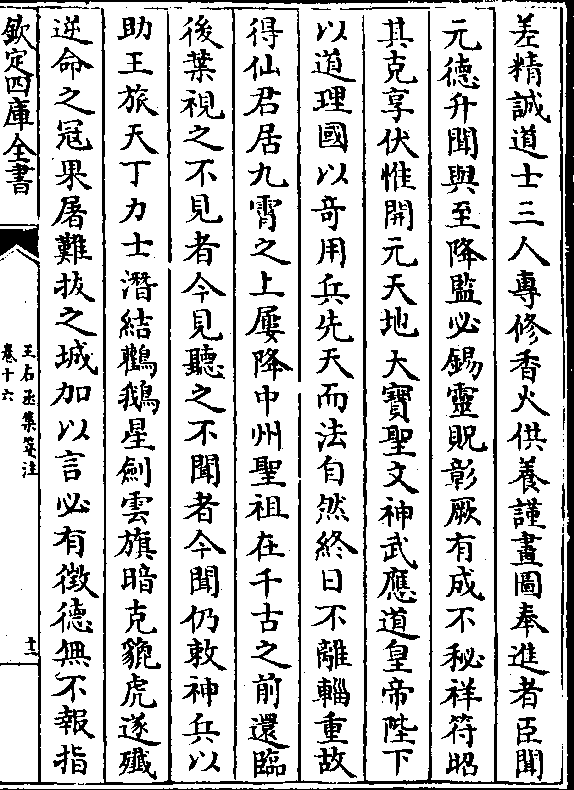 差精誠道士三人專修香火供養謹畫圖奉進者臣聞
元德升聞與至降監必錫靈貺彰厥有成不秘祥符昭
其克享伏惟開元天地大寶聖文神武應道皇帝陛下
以道理國以竒用兵先天而法自然終日不離輜重故
得仙君居九霄之上屢降中州聖祖在千古之前還臨
後葉視之不見者今見聽之不聞者今聞仍敕神兵以
助王旅天丁力士潛結鸛鵝星劍雲旗暗克貔虎遂殲
逆命之冦果屠難拔之城加以言必有徴德無不報指
欽定四庫全書
王右丞集箋注
卷十六
十二